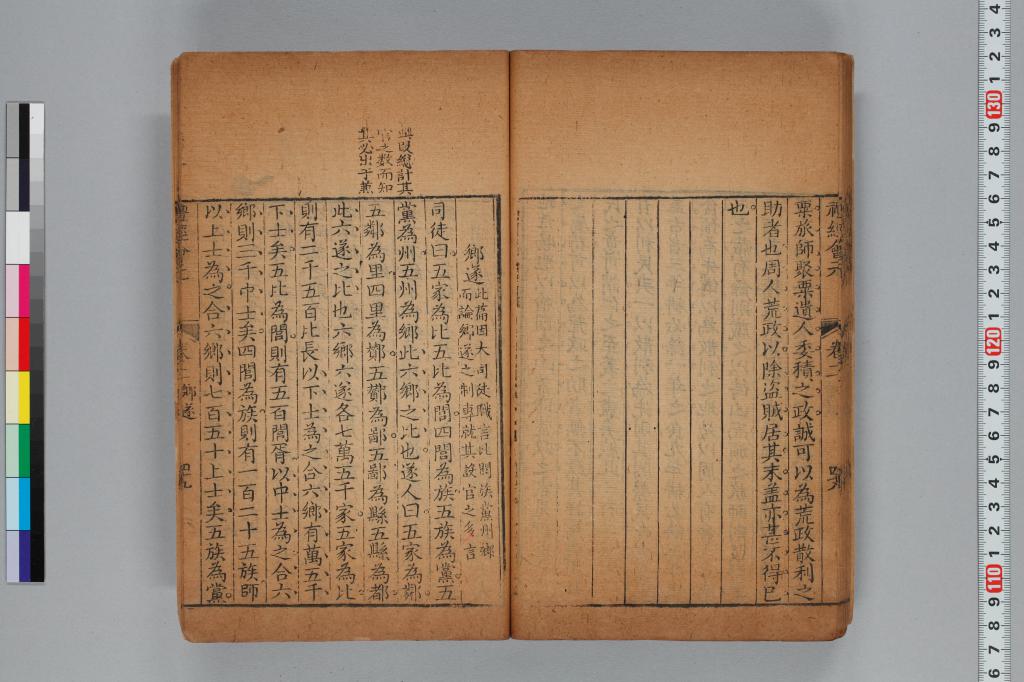 粟旅師聚粟遺人委積之政誠可以為荒政散利之
助者也周人荒政以除盜賊居其末盖亦甚不得已
也
鄉遂此篇因大司徒職言比閭族黨州鄉
而論鄉遂之制專就其設官之多言
司徒曰五家為比五比為閭四閭為族五族為黨五
黨為州五州為鄉此六鄉之比也遂人曰五家為鄰
五鄰為里四里為酇五酇為鄙五鄙為縣五縣為都
此六遂之比也六鄉六遂各七萬五千家五家為比
則有二千五百比長以下士為之合六鄉有萬五千
下士矣五比為閭則有五百閭胥以中士為之合六
鄉則三千中士矣四閭為族則有一百二十五族師
以上士為之合六鄉則七百五十上士矣五族為黨
既總計其
官之數而知
其必出于兼
卷二
鄉遂
四九